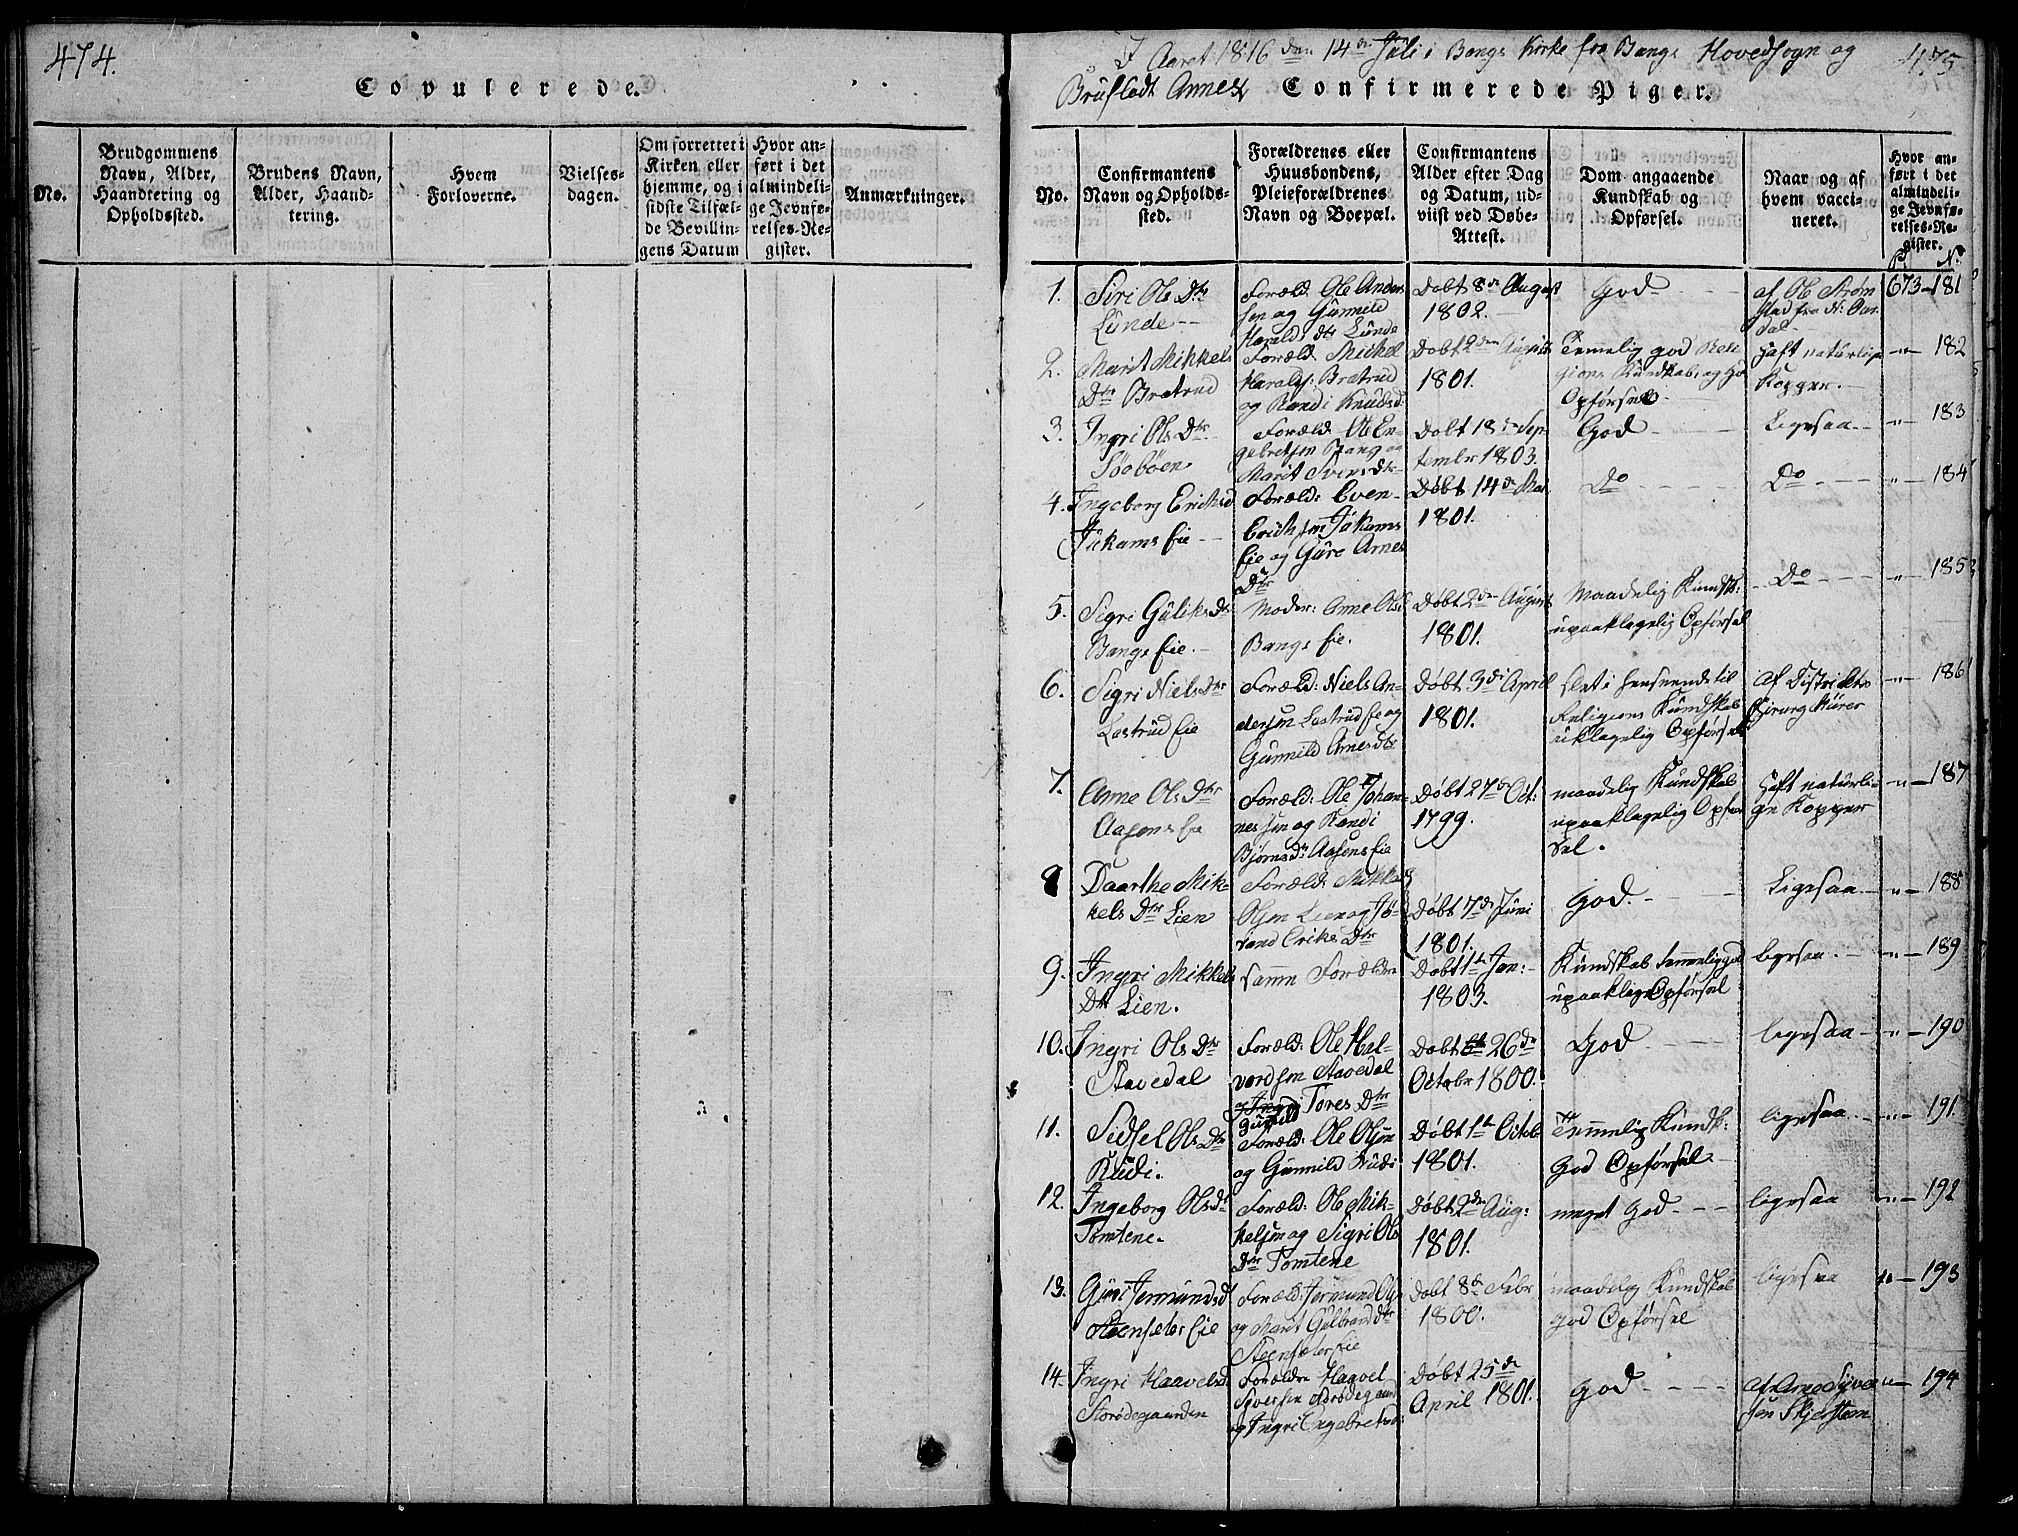 474.
Copulerede.
No.
Brudgommens
Navn, Alder,
Haandtering og
Opholdssted.
Brudens Navn,
Alder, Haand-
tering.
Hvem
Forloverne.
Vielses-
dagen.
Om forrettet i
Kirken eller
hjemme, og i
sidste Tilfæl-
de Bevillin-
gens Datum
Hvor an-
ført i det
almindeli-
ge Jevnfø-
relses-Re-
gister.
Anmærkninger.
I Aaret 1816 den 14de Juli i Bangs Kirke fra Bangs Hovedsogn og
475
Bruflodt Annex
Confirmerede Piger.
No.
Confirmantens
Navn og Opholds-
sted.
Forældrenes eller
Huusbondens,
Pleieforældrenes
Navn og Boepæl.
Confirmantens
Alder efter Dag
og Datum, ud-
viist ved Døbe-
Attest.
Dom angaaende
Kundskab og
Opførsel.
Naar og af
hvem vacci-
neret.
Hvor an-
ført i det
almindeli-
ge Jevnfø-
relses-Re-
gister.
P. No.
1. Siri Ols Dtr
Lunde
Foræld: Ole Anders
sen og Gunnild
Haralds dtr Lunde
Døbt 8de August
1802.
God
af Ole Strøm
stad fra N: Aur
dal
673-181
2. Marit Mikkels
Dtr Brætrud
Foræld: Mickel
Haralds: Brætrud
og Randi Knudsd:
Døbt 2den August
1801.
Temmelig god Reli
gions Kundskab, og Go
Opførsel
Haft naturlige
Kopper.
" 182
3. Ingri Ols Dtr
Søebøen
Foræld: Ole En-
gebretsen Bang og
Marit Svensdtr
Døbt 18de Sep-
tembr 1803.
God
Ligesaa
" 183
4. Ingeborg Erichsd
Jukams Eie
Foræld: Even
Erichsen Jukams
Eie og Guro Arnes
Dtr
Døbt 14de Mai
1801.
Do
Do
" 184
5. Sigri Guliksdt
Bangs Eie.
Moder: Anne Olsd
Bangs Eie.
Døbt 2den August
1801.
Maadelig Kundsk:
upaaklagelig Opførsel
Do
" 185
6. Sigri Niels Dtr
Lostrud Eie
Foræld: Niels An-
dersen Lostrud Eie og
Gunnild Arnesdtr
Døbt 3de April
1801.
slet i henseende til
Religions Kundskab
uklagelig Opførsel
af Distrikts
Chirurg Kürer
" 186
7. Anne Ols Dtr
Aasens Eie
Foræld: Ole Johan-
nessen og Randi
Bjørnsdr Aasens Eie
Døbt 27de Oct:
1799.
maadelig Kundskab
upaaklagelig Opfør
sel.
Haft naturli
ge Kopper
" 187
8 Daarthe Mik-
kels Dtr Lien
Foræld: Mikkel
Olsen Lien og Jø-
rand Eriks Dtr
Døbt 7de Juni
1801.
God.
Ligesaa
" 188
9. Ingri Mikkels
Dtr Lien.
samme Forældre
Døbt 1te Jan:
1803.
Kundskab temmelig god
upaaklig Opførsel
ligesaa.
" 189
10. Ingri Ols Dtr
Stavedal
Foræld: Ole Hal-
vordsen Stavedal
og Tores Dtr
Gunild
Døbt 26de
Octobr 1800.
God
ligesaa
" 190
11. Sidsel Ols Dtr
Rudi.
Foræld: Ole Olsen
og Gunnild Rudi
Døbt 1te Octob
1801.
Temmelig Kundsk:
God Opførsel
ligesaa
" 191
12. Ingeborg Olsdt
Tomtene.
Foræld: Ole Mik-
kelsen og Sigri Ols
Dtr Tomtene
Døbt 2de Aug:
1801.
meget God
ligesaa
" 192
13. Guri Jermundsd
Steensæter Eie
Foræld: Jermund Ols
og Marit Gulbrandsdtr
Steensæter Eie
Døbt 8de Febr
1800.
maadelig Kundskab
god Opførsel
ligesaa
" 193
14. Ingri Haavelsd
Storødegaarden
Forældre Haavel
Syversen Storødegaard
og Ingri Engebretsd:
Døbt 25de
April 1801.
God
af Arne Syver
sen Skjerstein
" 194